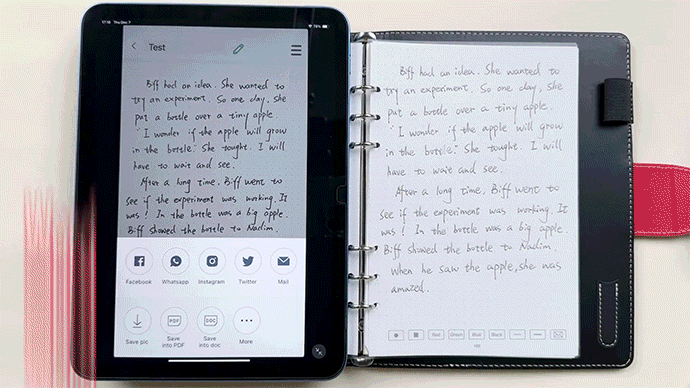 17:18 Thu Dec 7
78%
Test
Biff had an idea. She wanted to
try an experiment. So one day, she
put a bottle over a tiny apple.
"I wonder if the apple will grow
in the bottle." She tought. I will
have to wait and see.
After a long time, Biff went to
see if the experiment was working. It
was! In the bottle was a big apple.
Biff showed the bottle to Nadim.
Facebook Whatsapp Instagram Twitter Mail
PDF DOC
Save pic Save into PDF Save into doc More
Biff had an idea. She wanted to
try an experiment. So one day, she
put a bottle over a tiny apple.
"I wonder if the apple will grow
in the bottle." She tought. I will
have to wait and see.
After a long time, Biff went to
see if the experiment was working. It
was! In the bottle was a big apple.
Biff showed the bottle to Nadim.
When he saw the apple, she was
amazed.
Red Green Blue Black